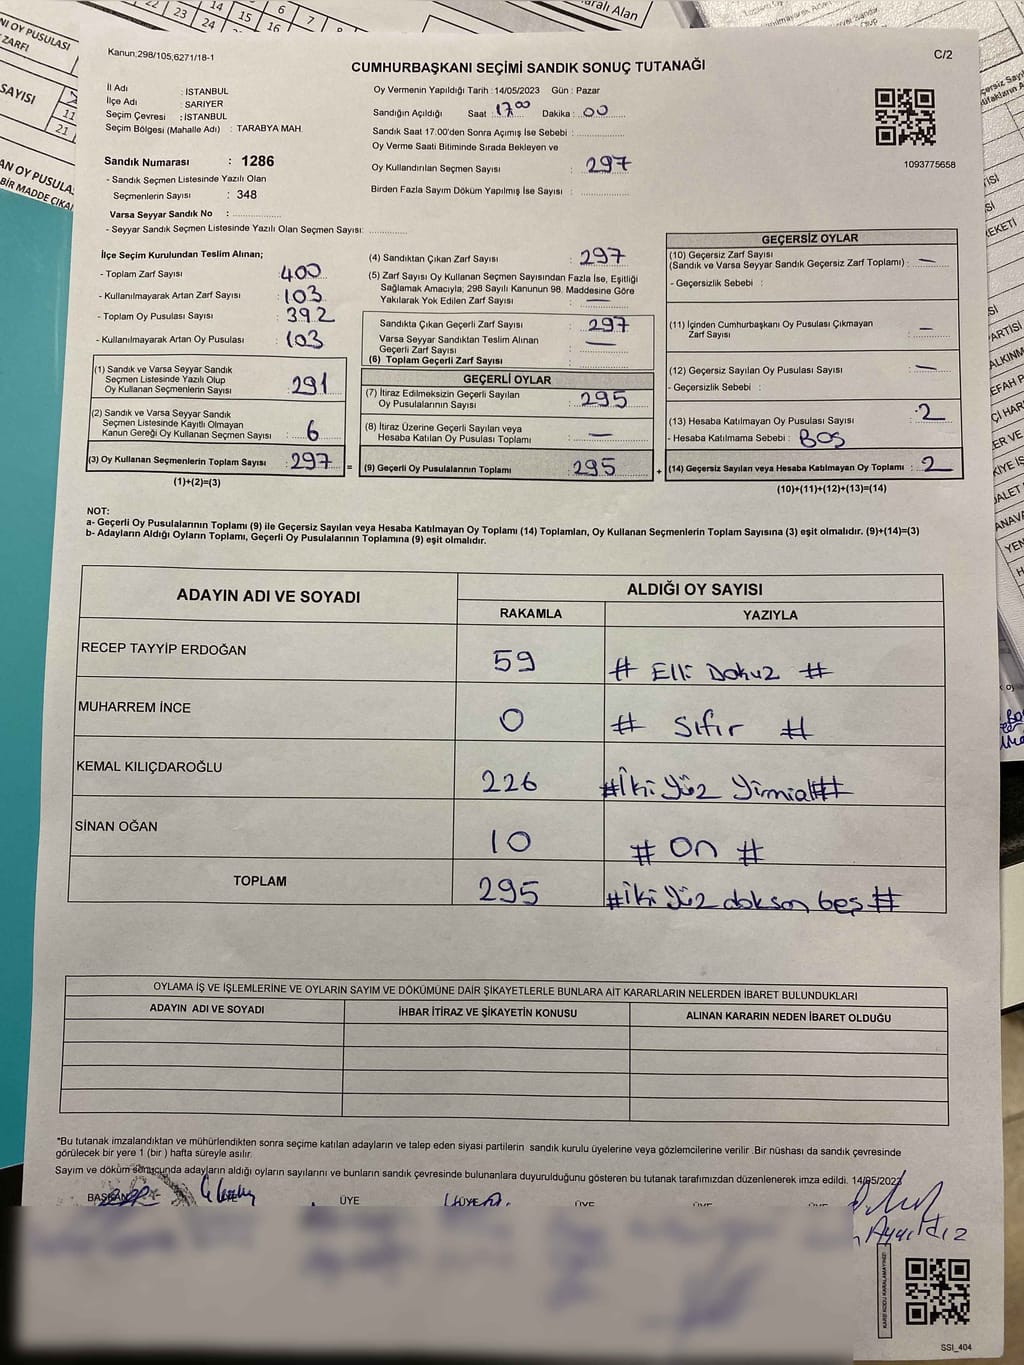 Kanun.298/105,6271/18-1
C/2
CUMHURBAŞKANI SEÇİMİ SANDIK SONUÇ TUTANAĞI
İl Adı : İSTANBUL
İlçe Adı : SARIYER
Seçim Çevresi : İSTANBUL
Seçim Bölgesi (Mahalle Adı) : TARABYA MAH.
Sandık Numarası : 1286
- Sandık Seçmen Listesinde Yazılı Olan
Seçmenlerin Sayısı : 348
Varsa Seyyar Sandık No :
- Seyyar Sandık Seçmen Listesinde Yazılı Olan Seçmen Sayısı:
Oy Vermenin Yapıldığı Tarih : 14/05/2023 Gün : Pazar
Sandığın Açıldığı Saat : 17.00 Dakika : 00
Sandık Saat 17.00'den Sonra Açımış İse Sebebi :
Oy Verme Saati Bitiminde Sırada Bekleyen ve
Oy Kullandırılan Seçmen Sayısı : 297
Birden Fazla Sayım Döküm Yapılmış İse Sayısı :
1093775658
İlçe Seçim Kurulundan Teslim Alınan;
- Toplam Zarf Sayısı : 400
- Kullanılmayarak Artan Zarf Sayısı : 103
- Toplam Oy Pusulası Sayısı : 392
- Kullanılmayarak Artan Oy Pusulası : 103
(1) Sandık ve Varsa Seyyar Sandık
Seçmen Listesinde Yazılı Olup
Oy Kullanan Seçmenlerin Sayısı : 291
(2) Sandık ve Varsa Seyyar Sandık
Seçmen Listesinde Kayıtlı Olmayan
Kanun Gereği Oy Kullanan Seçmen Sayısı : 6
(3) Oy Kullanan Seçmenlerin Toplam Sayısı : 297 =
(1)+(2)=(3)
(4) Sandıktan Çıkan Zarf Sayısı : 297
(5) Zarf Sayısı Oy Kullanan Seçmen Sayısından Fazla İse, Eşitliği
Sağlamak Amacıyla; 298 Sayılı Kanunun 98. Maddesine Göre
Yakılarak Yok Edilen Zarf Sayısı : —
Sandıkta Çıkan Geçerli Zarf Sayısı : 297
Varsa Seyyar Sandıktan Teslim Alınan
Geçerli Zarf Sayısı : —
(6) Toplam Geçerli Zarf Sayısı :
GEÇERLİ OYLAR
(7) İtiraz Edilmeksizin Geçerli Sayılan
Oy Pusulalarının Sayısı : 295
(8) İtiraz Üzerine Geçerli Sayılan veya
Hesaba Katılan Oy Pusulası Toplamı : —
(9) Geçerli Oy Pusulalarının Toplamı : 295 +
GEÇERSİZ OYLAR
(10) Geçersiz Zarf Sayısı
(Sandık ve Varsa Seyyar Sandık Geçersiz Zarf Toplamı) : —
- Geçersizlik Sebebi :
(11) İçinden Cumhurbaşkanı Oy Pusulası Çıkmayan
Zarf Sayısı : —
(12) Geçersiz Sayılan Oy Pusulası Sayısı : —
- Geçersizlik Sebebi :
(13) Hesaba Katılmayan Oy Pusulası Sayısı : 2
- Hesaba Katılmama Sebebi : BOŞ
(14) Geçersiz Sayılan veya Hesaba Katılmayan Oy Toplamı : 2
(10)+(11)+(12)+(13)=(14)
NOT:
a- Geçerli Oy Pusulalarının Toplamı (9) ile Geçersiz Sayılan veya Hesaba Katılmayan Oy Toplamı (14) Toplamları, Oy Kullanan Seçmenlerin Toplam Sayısına (3) eşit olmalıdır. (9)+(14)=(3)
b- Adayların Aldığı Oyların Toplamı, Geçerli Oy Pusulalarının Toplamına (9) eşit olmalıdır.
ADAYIN ADI VE SOYADI
ALDIĞI OY SAYISI
RAKAMLA YAZIYLA
RECEP TAYYİP ERDOĞAN 59 # Elli Dokuz #
MUHARREM İNCE 0 # Sıfır #
KEMAL KILIÇDAROĞLU 226 #İki Yüz Yirmialtı#
SİNAN OĞAN 10 # On #
TOPLAM 295 #İki Yüz doksan beş#
OYLAMA İŞ VE İŞLEMLERİNE VE OYLARIN SAYIM VE DÖKÜMÜNE DAİR ŞİKAYETLERLE BUNLARA AİT KARARLARIN NELERDEN İBARET BULUNDUKLARI
ADAYIN ADI VE SOYADI İHBAR İTİRAZ VE ŞİKAYETİN KONUSU ALINAN KARARIN NEDEN İBARET OLDUĞU
*Bu tutanak imzalandıktan ve mühürlendikten sonra seçime katılan adayların ve talep eden siyasi partilerin sandık kurulu üyelerine veya gözlemcilerine verilir. Bir nüshası da sandık çevresinde
görülecek bir yere 1 (bir ) hafta süreyle asılır.
Sayım ve döküm sonucunda adayların aldığı oyların sayılarını ve bunların sandık çevresinde bulunanlara duyurulduğunu gösteren bu tutanak tarafımızdan düzenlenerek imza edildi. 14/05/2023
BAŞKAN ÜYE ÜYE ÜYE
KARE KODU KARALAMAYINIZ!
SSI_404